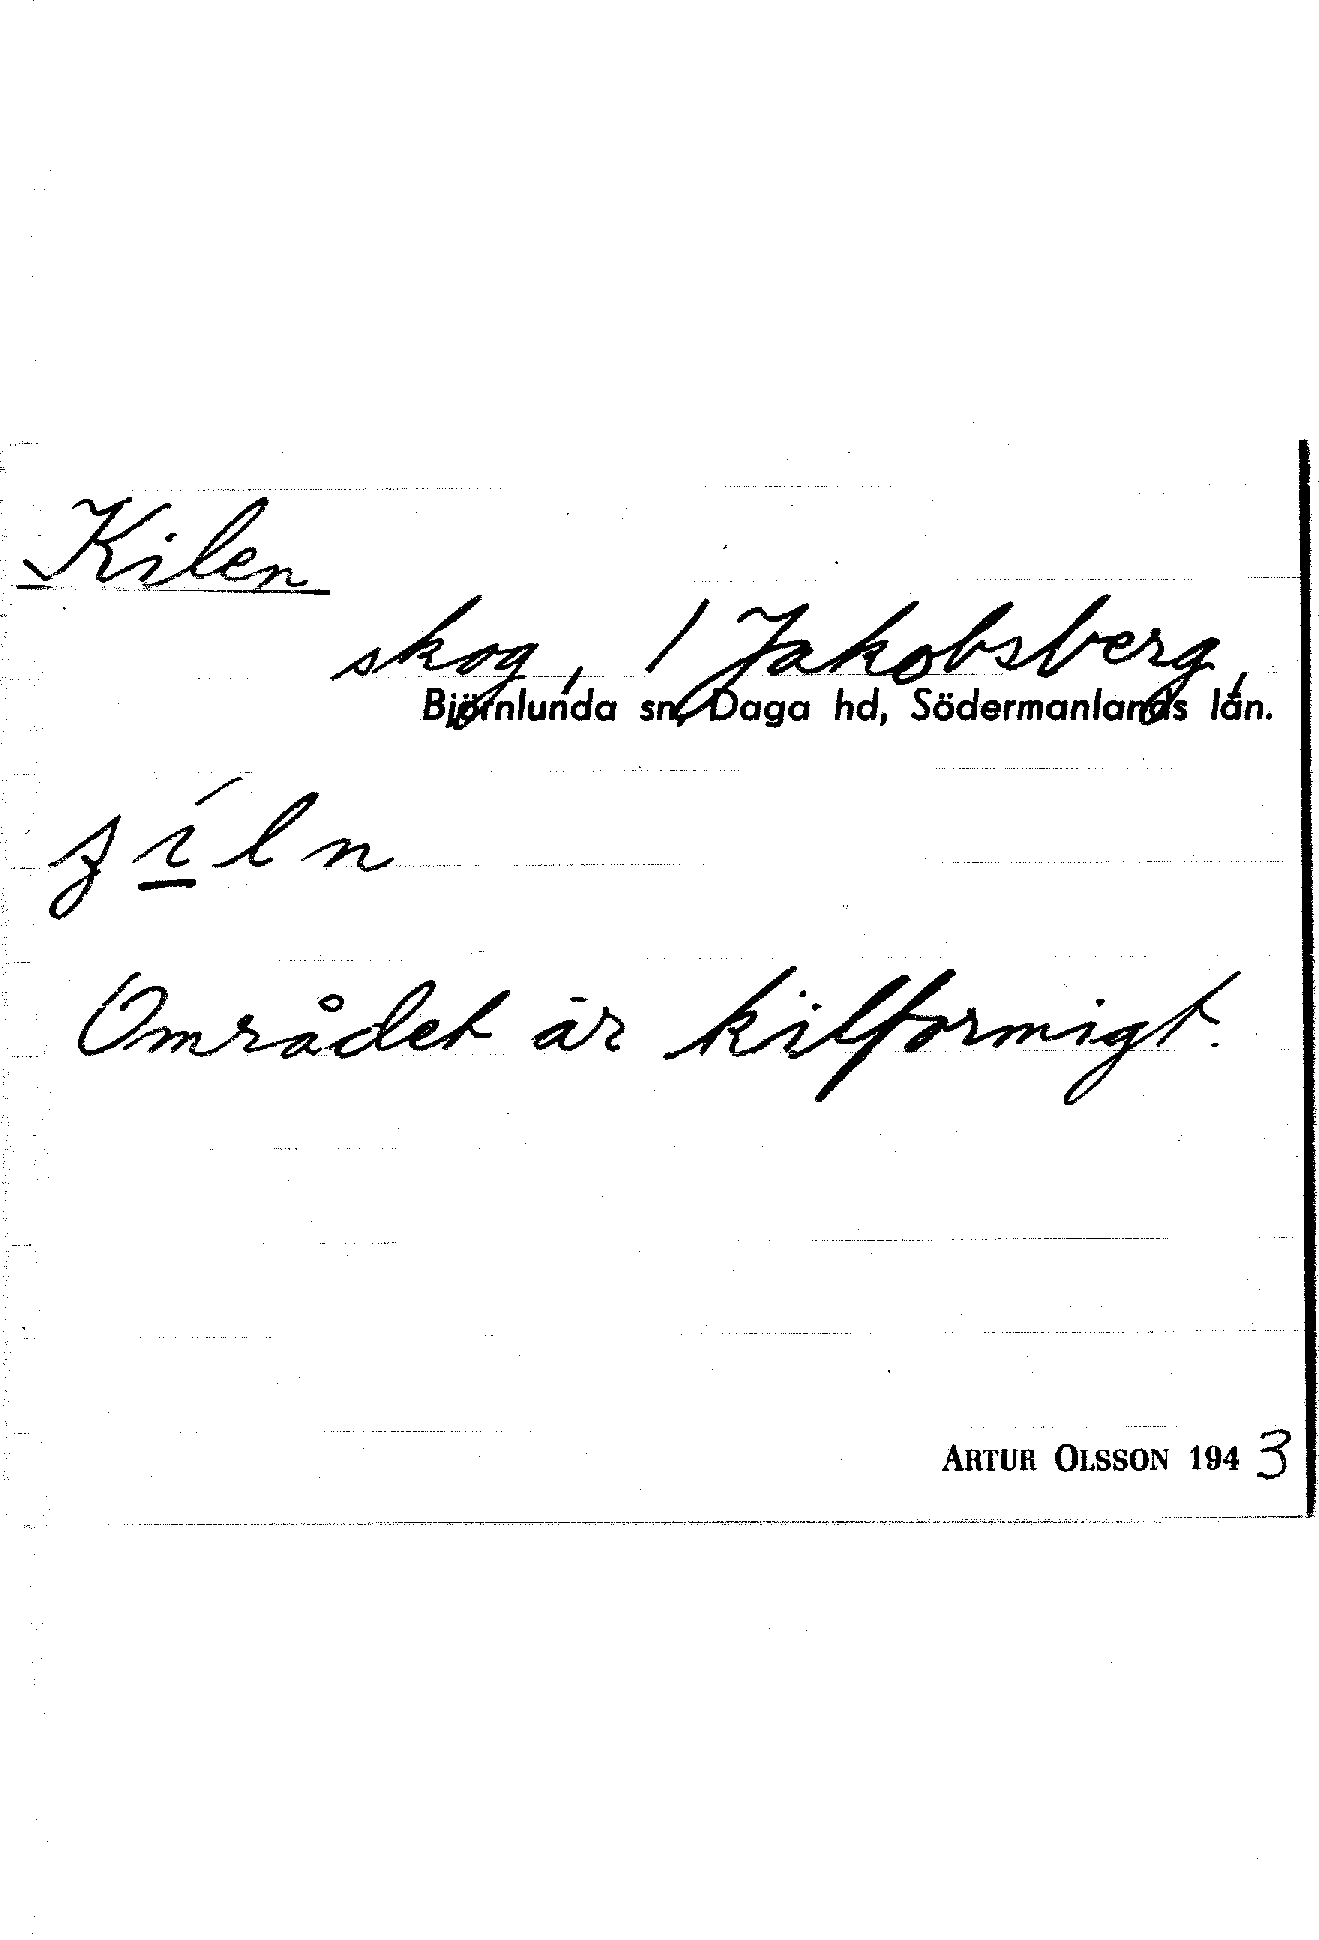 Kilen
skog, 1 Jakobsberg,
Björnlunda sn, Daga hd, Södermanlands län.
ʒíln
Området är kilformigt.
ARTUR OLSSON 1943